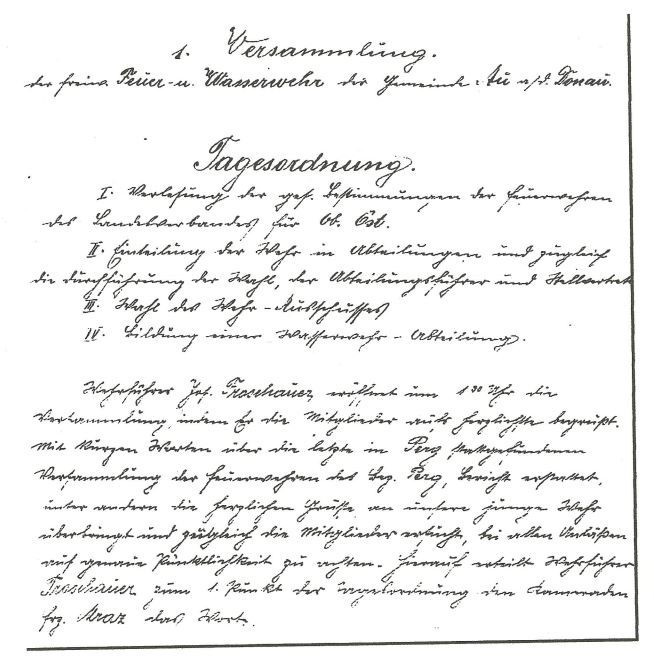 1. Versammlung.
der freiw. Feuer- u. Wasserwehr der Gemeinde: Au a/d. Donau.
Tagesordnung.
I. Verlesung der ges. Bestimmungen der Feuerwehren
des Landesverbandes für Ob. Öst.
II. Einteilung der Wehr in Abteilungen und zugleich
die Durchführung der Wahl, der Abteilungsführer und Stellvertret
III. Wahl des Wehr-Ausschusses
IV. Bildung einer Wasserwehr-Abteilung.
Wehrführer Jos. Froschauer eröffnet um 1 30 Uhr die
Versammlung, indem Er die Mitglieder aufs herzlichste begrüßt.
Mit kurzen Worten über die letzte in Perg stattgefundenen
Versammlung der Feuerwehren des Bez. Perg, Bericht erstattet,
unter andern die herzlichen Grüsse an unsere junge Wehr
überbringt und zugleich die Mitglieder ersucht, bei allen Anläßen
auf genaue Pünktlichkeit zu achten. Hierauf erteilt Wehrführer
Froschauer zum 1. Punkt der Tagesordnung den Kameraden
frz. Mraz das Wort.